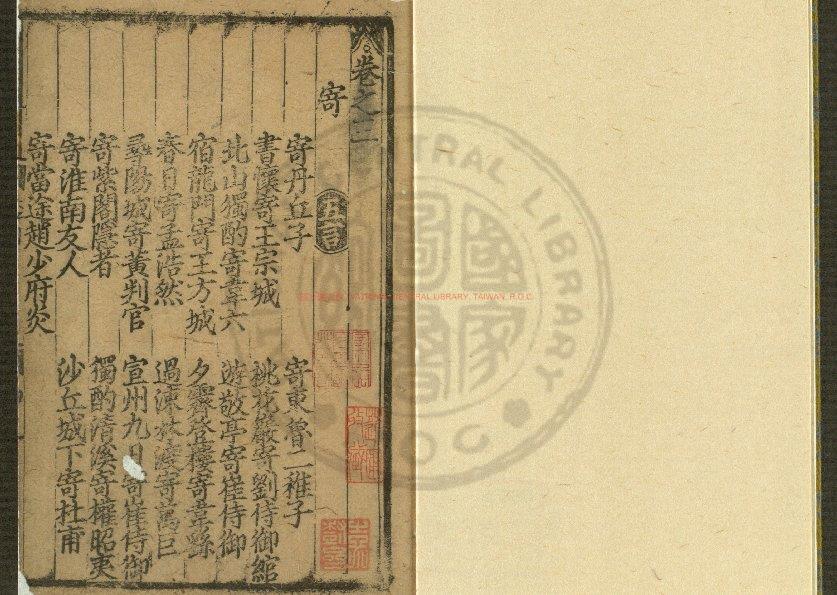 卷之三
寄
五言
寄丹丘子
寄東魯二稚子
書懷寄王宗城
桃花巖寄劉侍御綰
北山獨酌寄韋六
遊敬亭寄崔侍御
宿龍門寄王方城
夕霽登樓寄韋繇
春日寄孟浩然
過涑水陵寄萬巨
尋陽城寄黃判官
宣州九日寄崔侍御
寄紫閣隱者
獨酌清溪寄權昭夷
寄淮南友人
沙丘城下寄杜甫
寄當途趙少府炎
NATIONAL CENTRAL LIBRARY, TAIWAN, R.O.C.
CENTRAL LIBRARY
國家圖書館
ROC